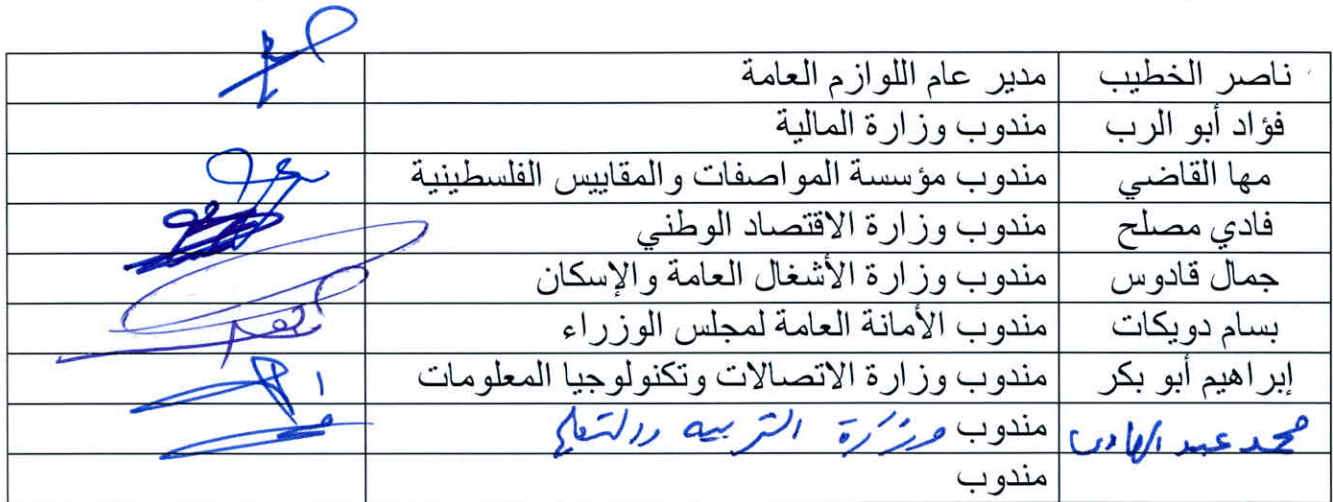 ناصر الخطيب مدير عام اللوازم العامة
فؤاد أبو الرب مندوب وزارة المالية
مها القاضي مندوب مؤسسة المواصفات والمقاييس الفلسطينية
فادي مصلح مندوب وزارة الاقتصاد الوطني
جمال قادوس مندوب وزارة الأشغال العامة والإسكان
بسام دويكات مندوب الأمانة العامة لمجلس الوزراء
إبراهيم أبو بكر مندوب وزارة الاتصالات وتكنولوجيا المعلومات
محمد عبد الهادي مندوب وزارة التربيه والتعليم
مندوب